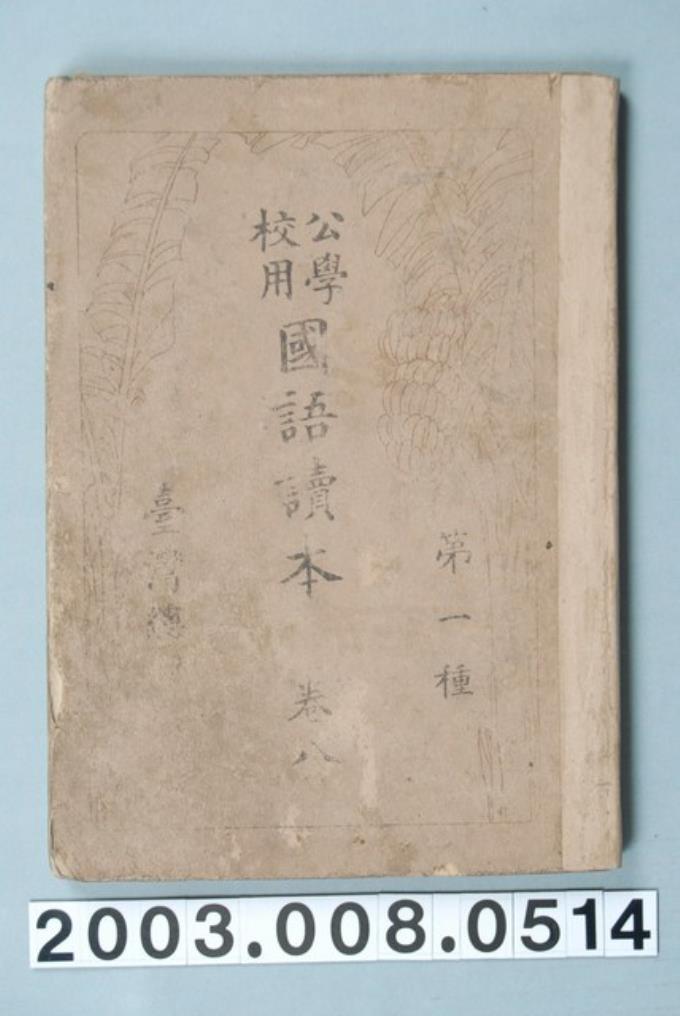 第一種
公學
校用
國語讀本 卷八
臺灣總
2003.008.0514